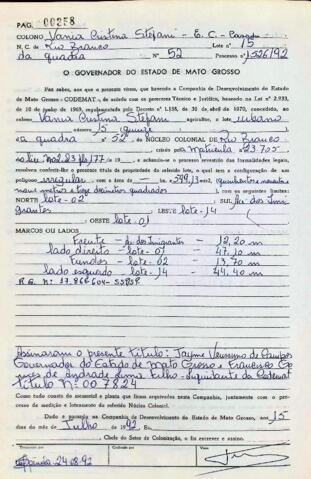 PAG. 00258
COLONO Vania Cristina Stefani - E. C. -
N. C. de Rio Branco Lote nº 15
da quadra Nº 52 Processo nº 1526/92
O GOVERNADOR DO ESTADO DE MATO GROSSO
Faz saber, aos que o presente virem, que havendo a Companhia de Desenvolvimento do Estado
de Mato Grosso - CODEMAT -, de acordo com os pareceres Técnico e Jurídico, baseado na Lei nº 2.933,
de 1969, regulamentada pelo Decreto 1.138, de 30 de abril de 1970, concedido, ao
colono Vania Cristina Stefani agricultor, o lote urbano
número 15 (quinze)
a quadra nº 52 do NÚCLEO COLONIAL DE Rio Branco
criado pela Matricula nº 23.705
, e achando-se o processo revestido das formalidades legais,
resolveu conferir-lhe o presente título de propriedade do referido lote, o qual tem a configuração de um
polígono irregular com a área de 599,13 m2, quinhentos e noventa e
nove metros e treze decímetros quadrados) , com os seguintes limites:
NORTE lote - 02 SUL Av. dos Imi
grantes LESTE lote - 14
, OESTE lote - 01
MARCOS OU LADOS
Frente - Av. dos Imigrantes - 12,20 m
lado direito - lote - 01 - 47,10 m
fundos - lote - 02 - 13,70 m
lado esquerdo - lote - 14 - 44,40 m
R.G. Nº: 17.866.604-SSP/SP
Assinaram o presente título: Jayme Verissimo de Campos
Governador do Estado de Mato Grosso e Francisco Go
de Andrade Lima Filho - Liquidante da Codemat
Título Nº 007824
Como tudo consta do memorial e planta que ficam arquivados nesta Companhia, juntamente com o pro-
cesso de medição e loteamento do referido Núcleo Colonial.
Dado e passado na Companhia de Desenvolvimento do Estado de Mato Grosso, aos 15
dias do mês de Julho de 1992. Eu,
, Chefe do Setor de Colonização, o fiz escrever e assino.
24-08-92